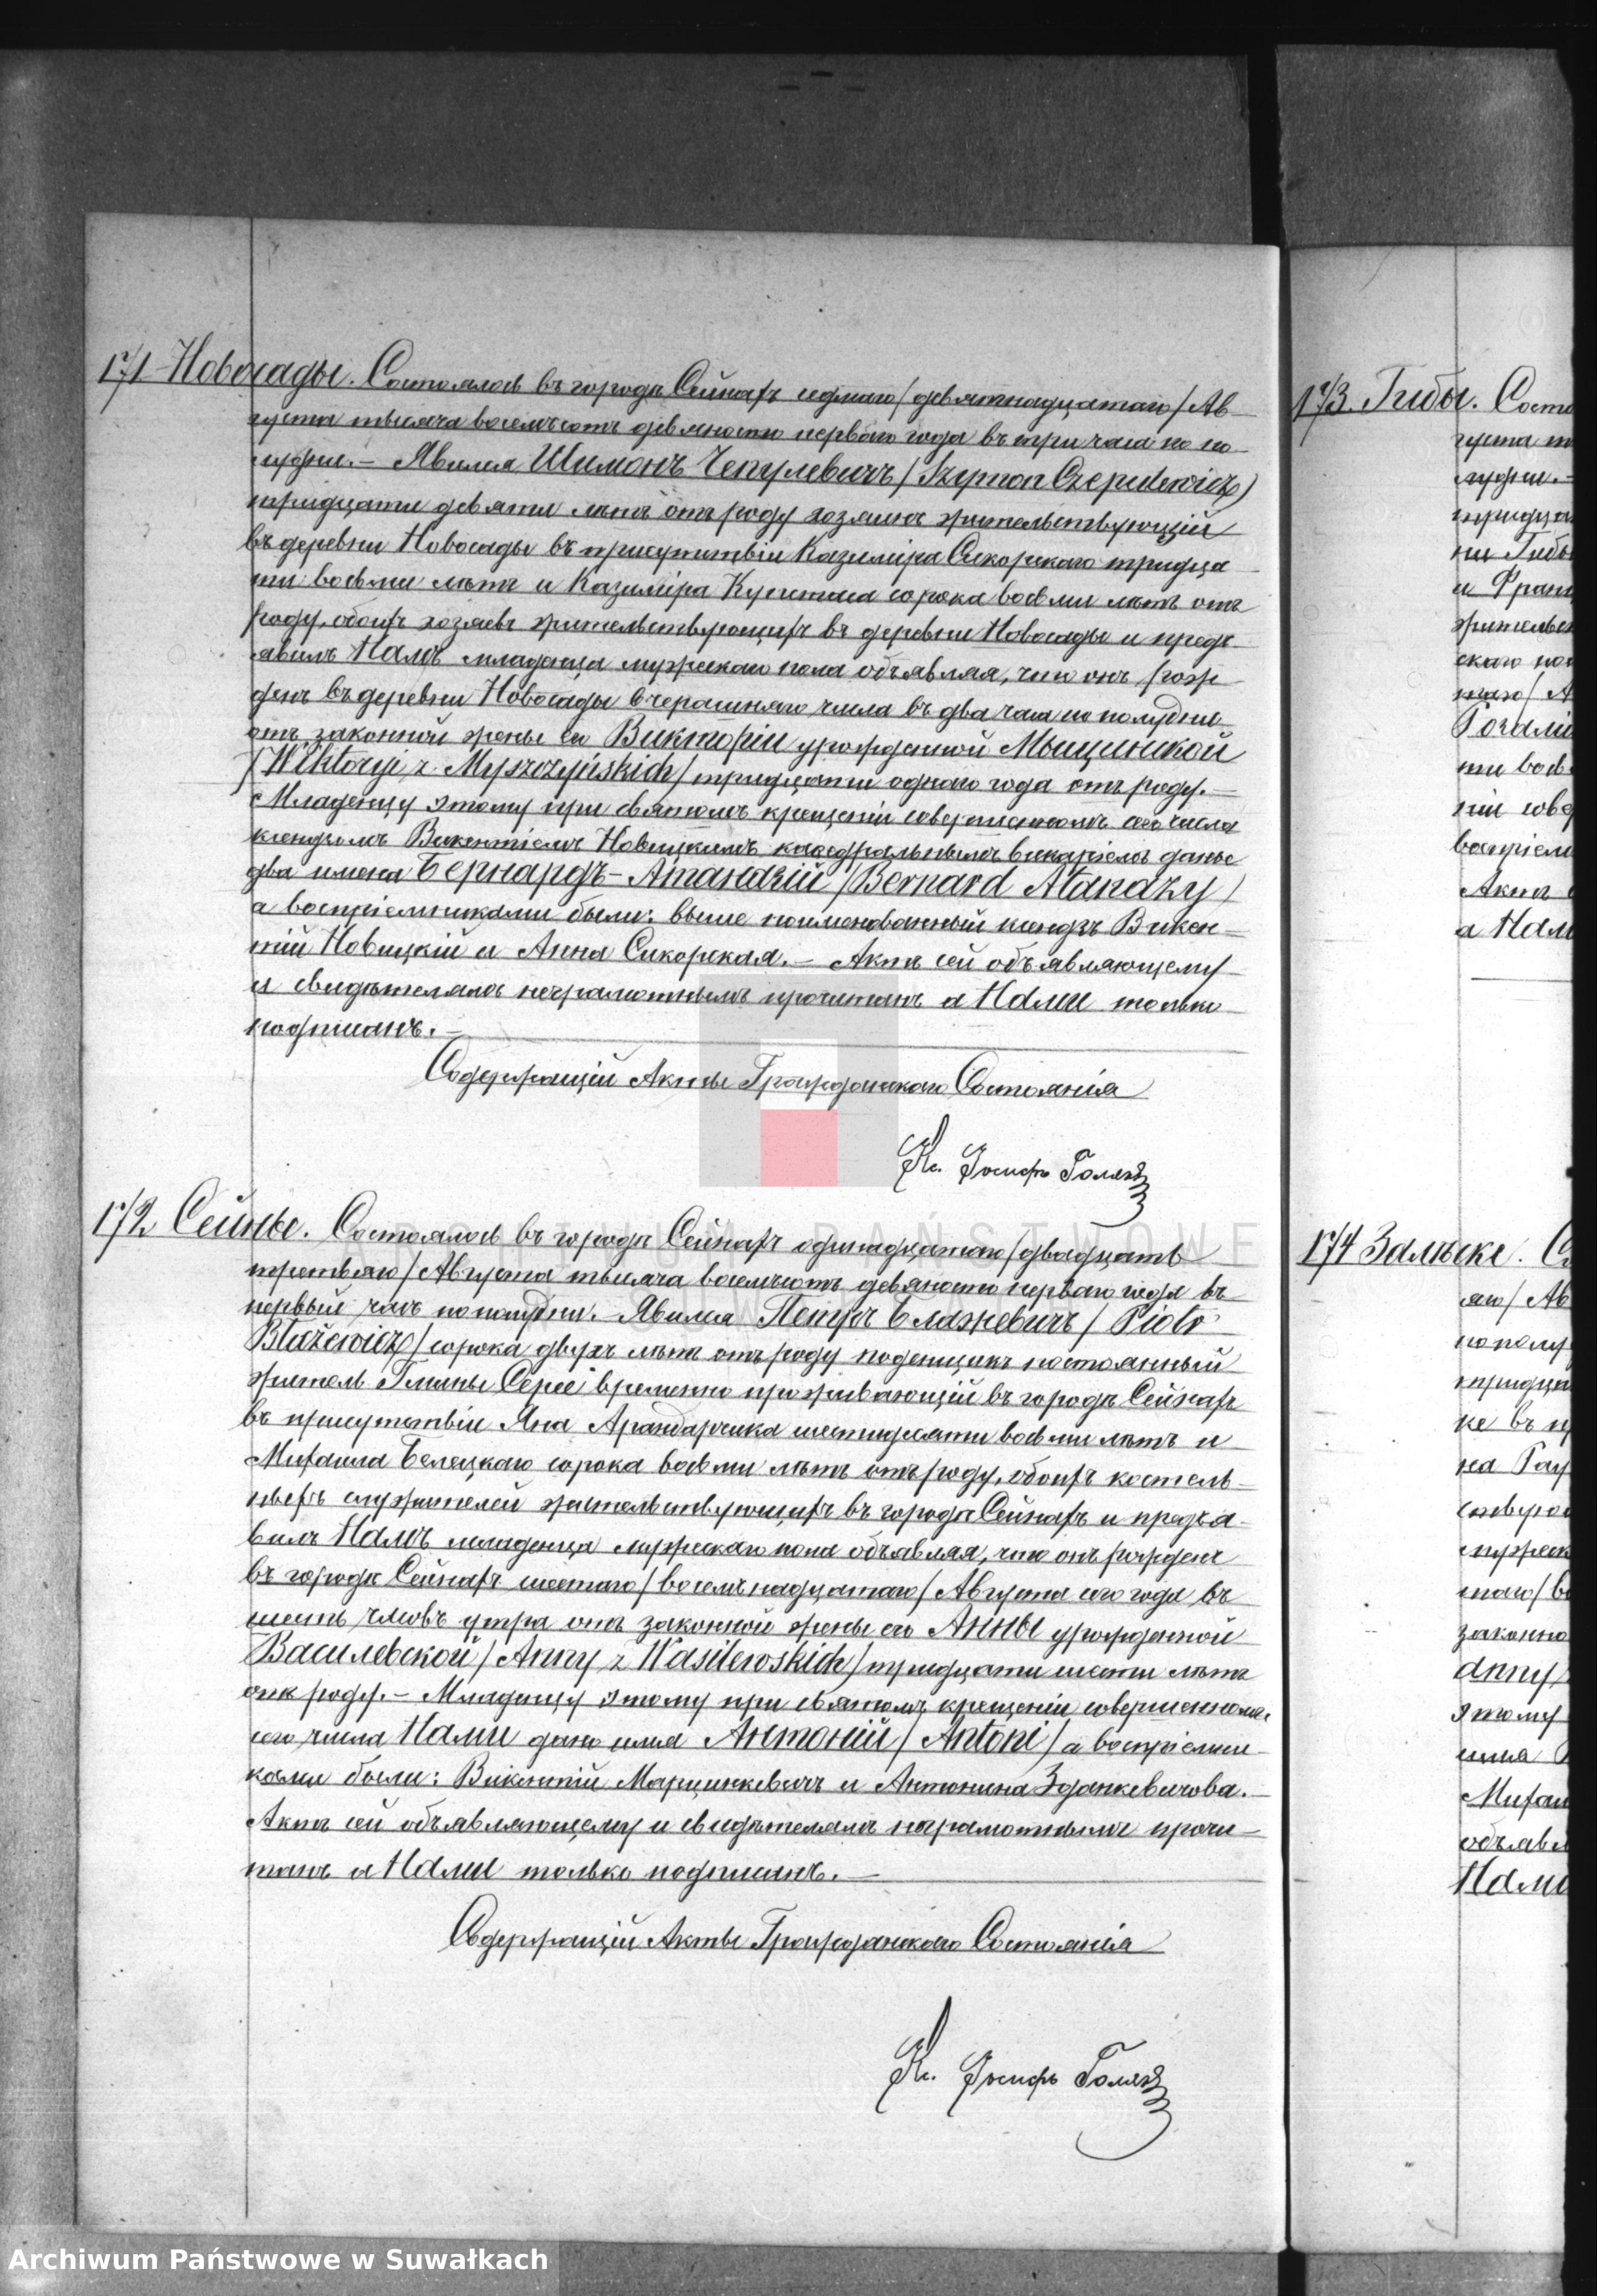 171 Новосады. Состоялось въ городѣ Сейнахъ седмаго/девятнадцатаго/Ав-
густа тысяча восемьсотъ девяносто перваго года въ три часа по по-
лудни.- Явился Шимонъ Чепулевичъ/Szymon Czepulewicz)
тридцати девяти лѣтъ отъ роду хозяинъ жительствующій
въ деревни Новосады въ присутствіи Казиміра Сикорскаго тридца
ти восьми лѣтъ и Казиміра сорока восьми лѣтъ отъ
роду, обоихъ хозяевъ жительствующихъ въ деревни Новосады и предъ-
явилъ Намъ младенца мужескаго пола объявляя, что онъ рож-
денъ въ деревни Новосады вчерашняго числа въ два часа по полудни
отъ законной жены его Викторіи урожденной Мыщинской
/Wiktoryi z Myszczyńskich/ тридцати одного года отъ роду.-
Младенцу этому при святомъ крещеніи совершенномъ сего числа
ксендзомъ Викентіемъ Новицкимъ каѳедральнымъ викаріемъ даны
два имена Бернардъ-Атаназій/Bernard Atanazy/
а воспріемниками были: выше поименованный ксендзъ Викен-
тій Новицкій и Анна Сикорская.- Актъ сей объявляющему
и свидѣтелямъ неграмотнымъ прочитанъ а Нами только
подписанъ.-
Содержащій Акты Гражданскаго Состоянія
Кс. Іосифъ
172 Сейны. Состоялось въ городѣ Сейнахъ одинадцатаго/двадцать
третьяго/Августа тысяча восемьсотъ девяносто перваго года въ
первый часъ пополудни.- Явился Петръ Блажевичъ/Piotr
Błażewicz/сорока двухъ лѣтъ отъ роду поденщикъ постоянный
житель Гмины Сереѣ временно проживающій въ городѣ Сейнахъ
въ присутствіи Яна Арандарчика шестидесяти восьми лѣтъ и
Михаила Белецкаго сорока восьми лѣтъ отъ роду, обоихъ костель-
ныхъ служителей жительствующихъ въ городѣ Сейнахъ и предъя-
вилъ Намъ младенца мужескаго пола объявляя, что онъ рожденъ
въ городѣ Сейнахъ шестаго/восемьнадцатаго/Августа сего года въ
шесть часовъ утра отъ законной жены его Анны урожденной
Василевской/Anny z Wasilewskich/тридцати шести лѣтъ
отъ роду.- Младенцу этому при святомъ крещеніи совершенномъ
сего числа Нами дано имя Антоній/Antoni/а воспріемни-
ками были: Викентій Марцинкевичъ и Антонина Зданкевичова.-
Актъ сей объявляющему и свидѣтелямъ неграмотнымъ прочи-
танъ а Нами только подписанъ.-
Содержащій Акты Гражданскаго Состоянія
Кс. Іосифъ
173. Гибы. Состо
густа т
лудни.-
тридца
ни Гибы
и Фран
жительс
скаго по
таго/А
Розалі
ти вось
ніи сове
воспріем
Актъ
а Нам
174 Залѣске. С
аго/Ав
по полу
тридца
ке въ п
на Гау
мужеск
таго/в
законно
Anny
этому
имя
Михаи
объявл
Нами
ARCHIWUM PAŃSTWOWE
W SUWAŁKACH
Archiwum Państwowe w Suwałkach